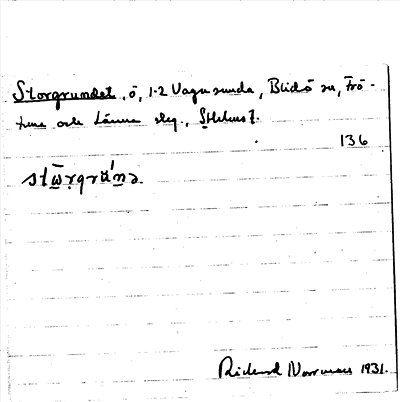 Storgrundet, ö, 1-2 Vagnsunda, Blidö sn, Frö-
tuna och Länna skg., Sthlms l.
136
Rickard Norrman 1931.